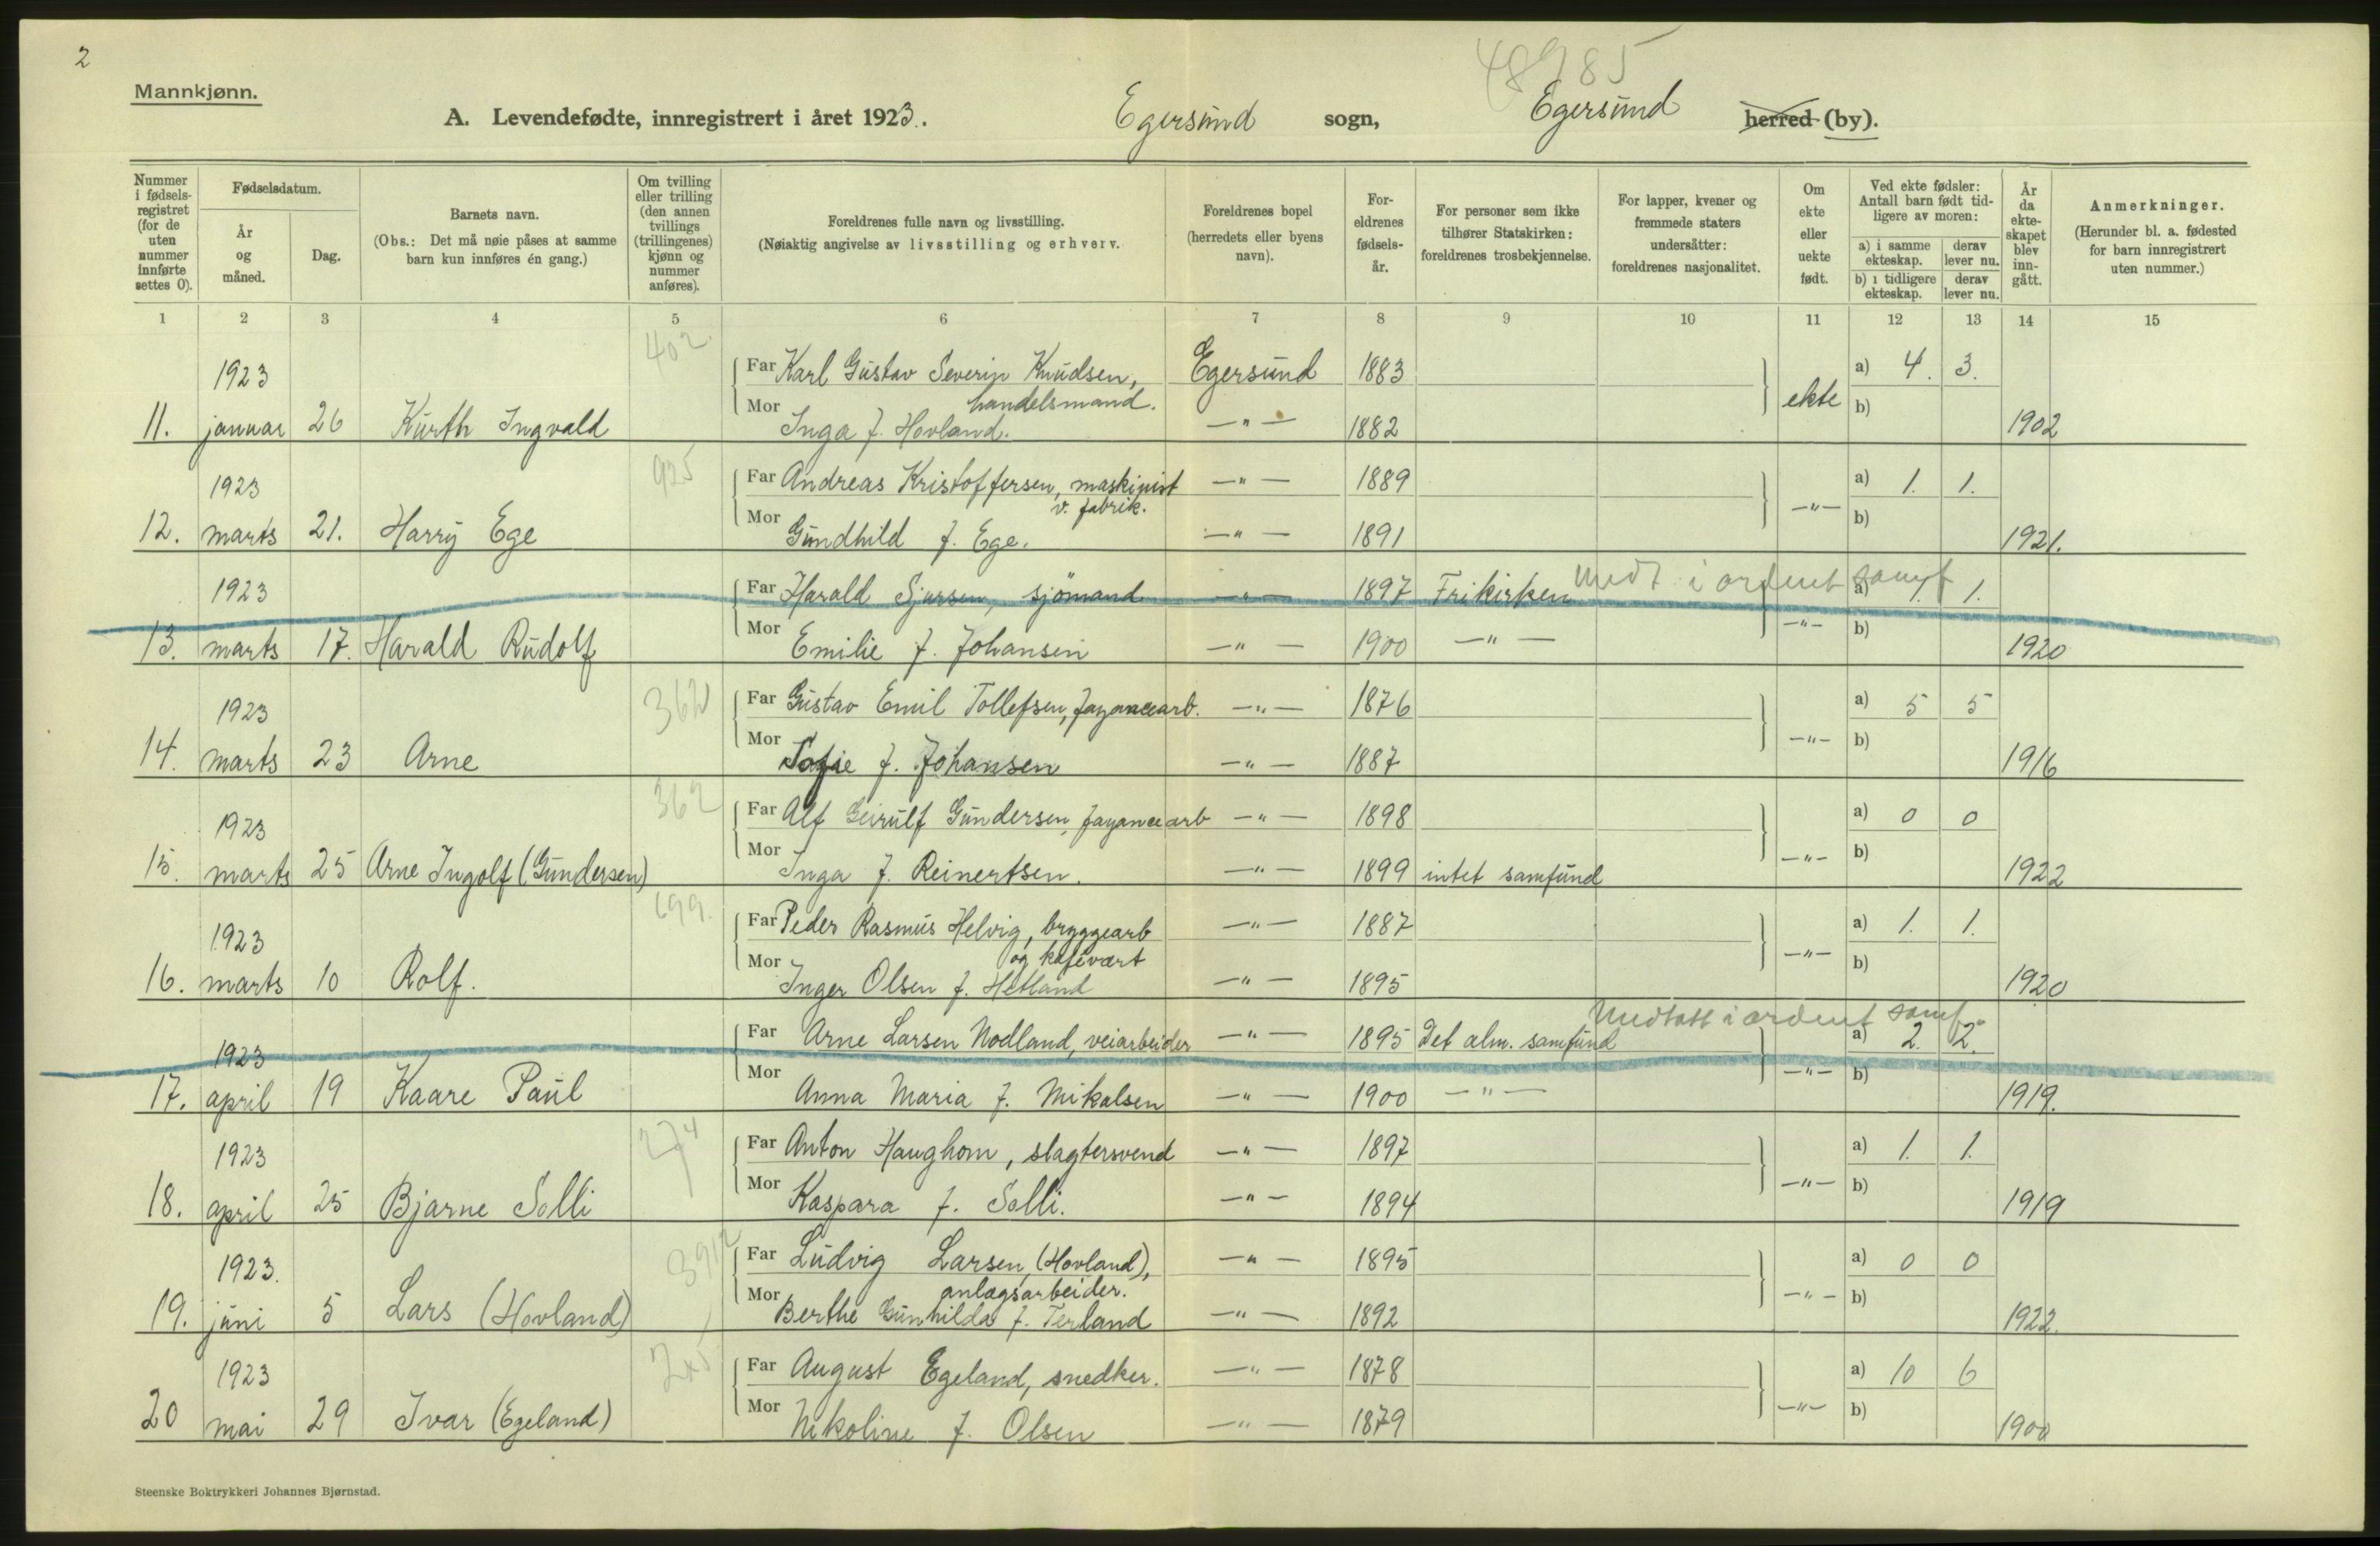 2
48985
Mannkjønn.
A. Levendefødte, innregistrert i året 1923. Egersund sogn, Egersund herred (by).
Nummer i fødsels-registret (for de uten nummer innførte settes 0).
Fødselsdatum.
År og måned.
Dag.
Barnets navn.
(Obs.: Det må nøie påses at samme barn kun innføres én gang.)
Om tvilling eller trilling (den annen tvillings (trillingenes) kjønn og nummer anføres).
Foreldrenes fulle navn og livsstilling.
(Nøiaktig angivelse av livsstilling og erhverv.
Foreldrenes bopel (herredets eller byens navn).
For-eldrenes fødsels-år.
For personer som ikke tilhører Statskirken: foreldrenes trosbekjennelse.
For lapper, kvener og fremmede staters undersåtter: foreldrenes nasjonalitet.
Om ekte eller uekte født.
Ved ekte fødsler: Antall barn født tid-ligere av moren:
a) i samme ekteskap. derav lever nu.
b) i tidligere ekteskap. derav lever nu.
År da ekte-skapet blev inn-gått.
Anmerkninger.
(Herunder bl. a. fødested for barn innregistrert uten nummer.)
1 2 3 4 5 6 7 8 9 10 11 12 13 14 15
402.
1923 Far Karl Gustav Severin Knudsen, Egersund 1883 a) 4. 3.
handelsmand. ekte b)
11. januar 26 Kurth Ingvald Mor Inga f. Hovland. —"— 1882 1902
925
1923 Far Andreas Kristoffersen, maskinist —"— 1889 a) 1. 1.
v. fabrik. —"— b)
12. marts 21. Harry Ege Mor Gundhild f. Ege. —"— 1891 1921.
1923 Far Harald Sjursen, sjömand —"— 1897 Frikirken medt i ordent samf a) 1. 1.
—"— b)
13. marts 17. Harald Rudolf Mor Emilie f. Johansen —"— 1900 —"— 1920
362
1923 Far Gustav Emil Tollefsen, fayancearb. —"— 1876 a) 5 5
—"— b)
14. marts 23 Arne Mor Sofie f. Johansen —"— 1887 1916
362
1923 Far Alf Geirulf Gundersen, fayancearb —"— 1898 a) 0 0
—"— b)
15. marts 25 Arne Ingolf (Gundersen) Mor Inga f. Reinertsen. —"— 1899 intet samfund 1922
699.
1923 Far Peder Rasmus Helvig, bryggearb —"— 1887 a) 1. 1.
og kafévært —"— b)
16. marts 10 Rolf. Mor Inger Olsen f. Hetland —"— 1895 1920
1923 Far Arne Larsen Nodland, veiarbeider —"— 1895 Det alm. samfund Medtatt i ordent samf. a) 2. 2.
—"— b)
17. april 19 Kaare Paul Mor Anna Maria f. Mikalsen —"— 1900 —"— 1919.
274
1923 Far Anton Haughom, slagtersvend —"— 1897 a) 1. 1.
—"— b)
18. april 25 Bjarne Solli Mor Kaspara f. Solli. —"— 1894 1919
3912
1923. Far Ludvig Larsen, (Hovland), —"— 1895 a) 0 0
anlægsarbeider. —"— b)
19. juni 5 Lars (Hovland) Mor Berthe Gunhilda f. Terland —"— 1892 1922.
245
1923 Far August Egeland, snedker. —"— 1878 a) 10 6
—"— b)
20 mai 29 Ivar (Egeland) Mor Nikoline f. Olsen —"— 1879 1900
Steenske Boktrykkeri Johannes Bjørnstad.